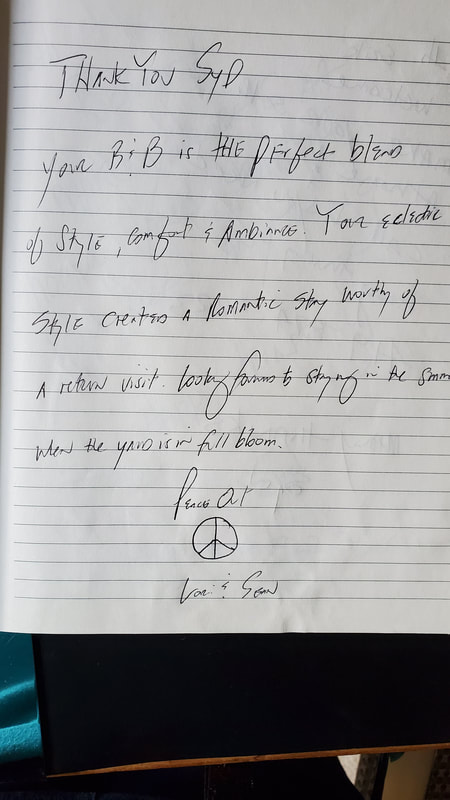 Thank You Syd
Your B & B is the perfect blend
of style, comfort & Ambiance. Your eclectic
style created a Romantic stay worthy of
A return visit. Looking forward to staying in the
when the yard is in full bloom.
Peace Out
& Sean